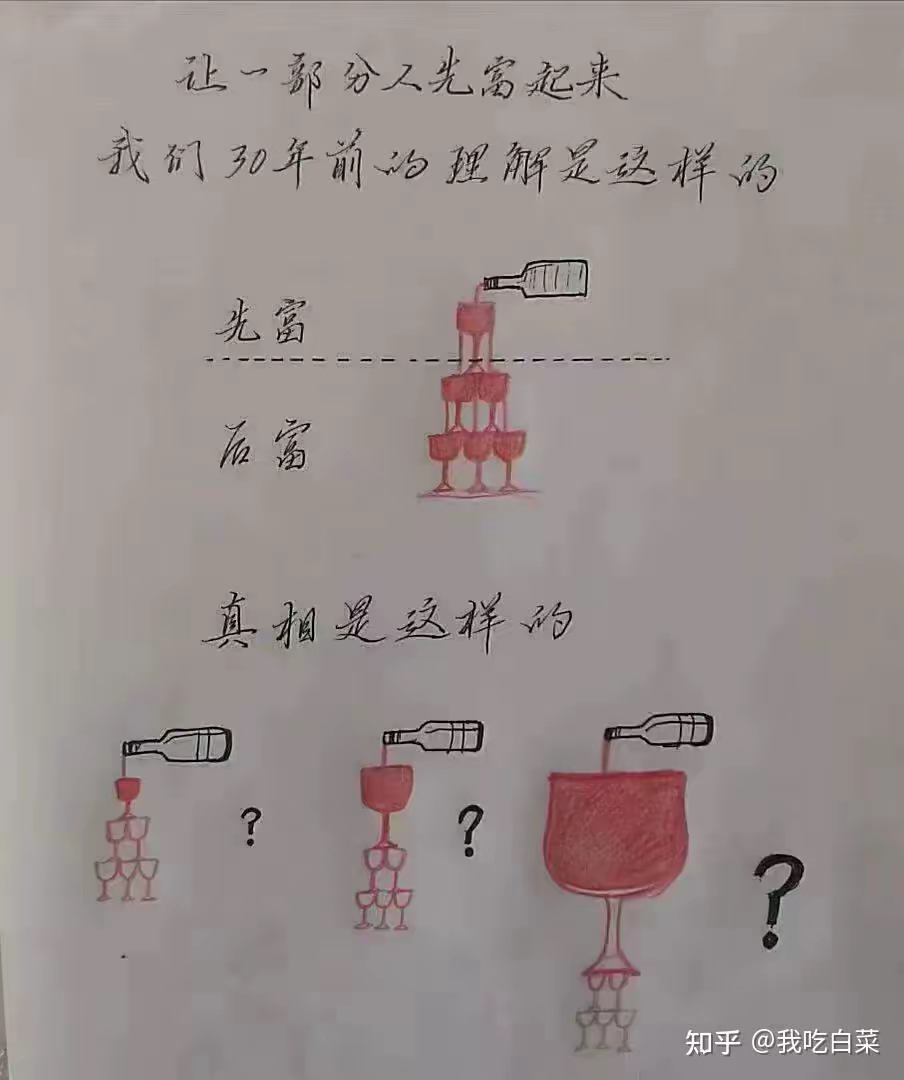 让一部分人先富起来
我们30年前的理解是这样的
先富
后富
真相是这样的
?
?
?
知乎 @我吃白菜